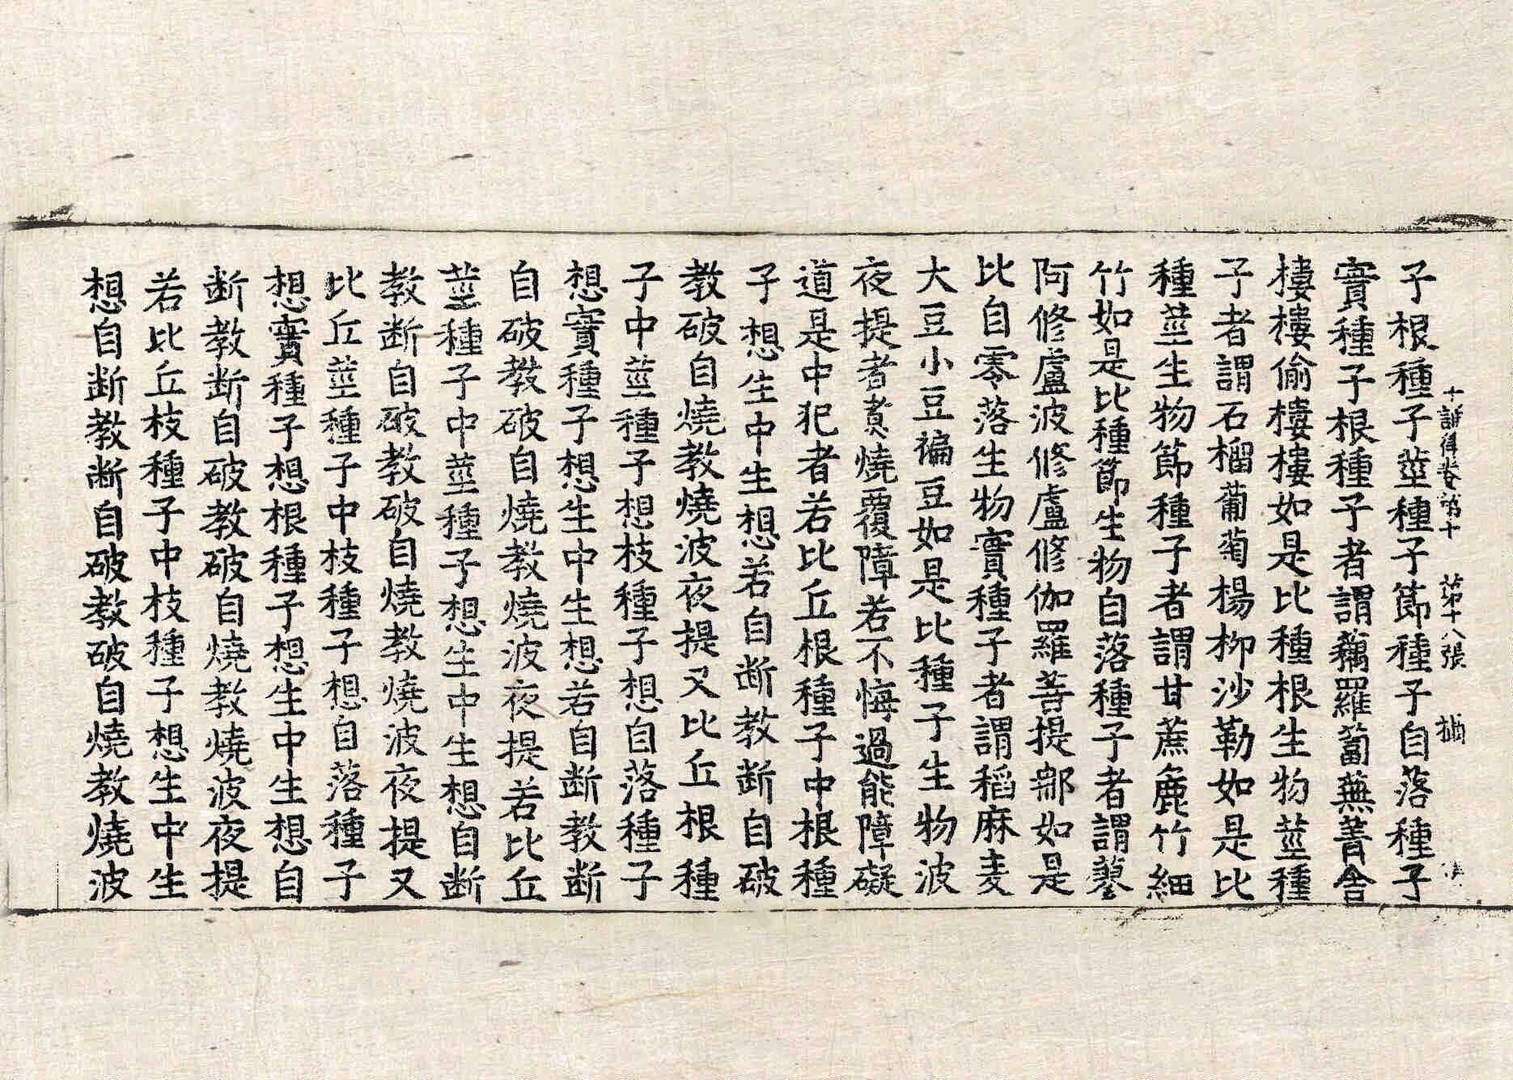 十誦律卷第十 第十八張 攝
子根種子莖種子節種子自落種子
實種子根種子者謂藕羅蔔蕪菁舍
樓樓偷樓樓如是比種根生物莖種
子者謂石榴葡萄楊柳沙勒如是比
種莖生物節種子者謂甘蔗麁竹細
竹如是比種節生物自落種子者謂蓼
阿修盧波修盧修伽羅菩提那如是
比自零落生物實種子者謂稻麻麦
大豆小豆褊豆如是比種子生物波
夜提者煮燒覆障若不悔過能障礙
道是中犯者若比丘根種子中根種
子想生中生想若自断教断自破
教破自燒教燒波夜提又比丘根種
子中莖種子想枝種子想自落種子
想實種子想生中生想若自断教断
自破教破自燒教燒波夜提若比丘
莖種子中莖種子想生中生想自断
教断自破教破自燒教燒波夜提又
比丘莖種子中枝種子想自落種子
想實種子想根種子想生中生想自
断教断自破教破自燒教燒波夜提
若比丘枝種子中枝種子想生中生
想自断教断自破教破自燒教燒波